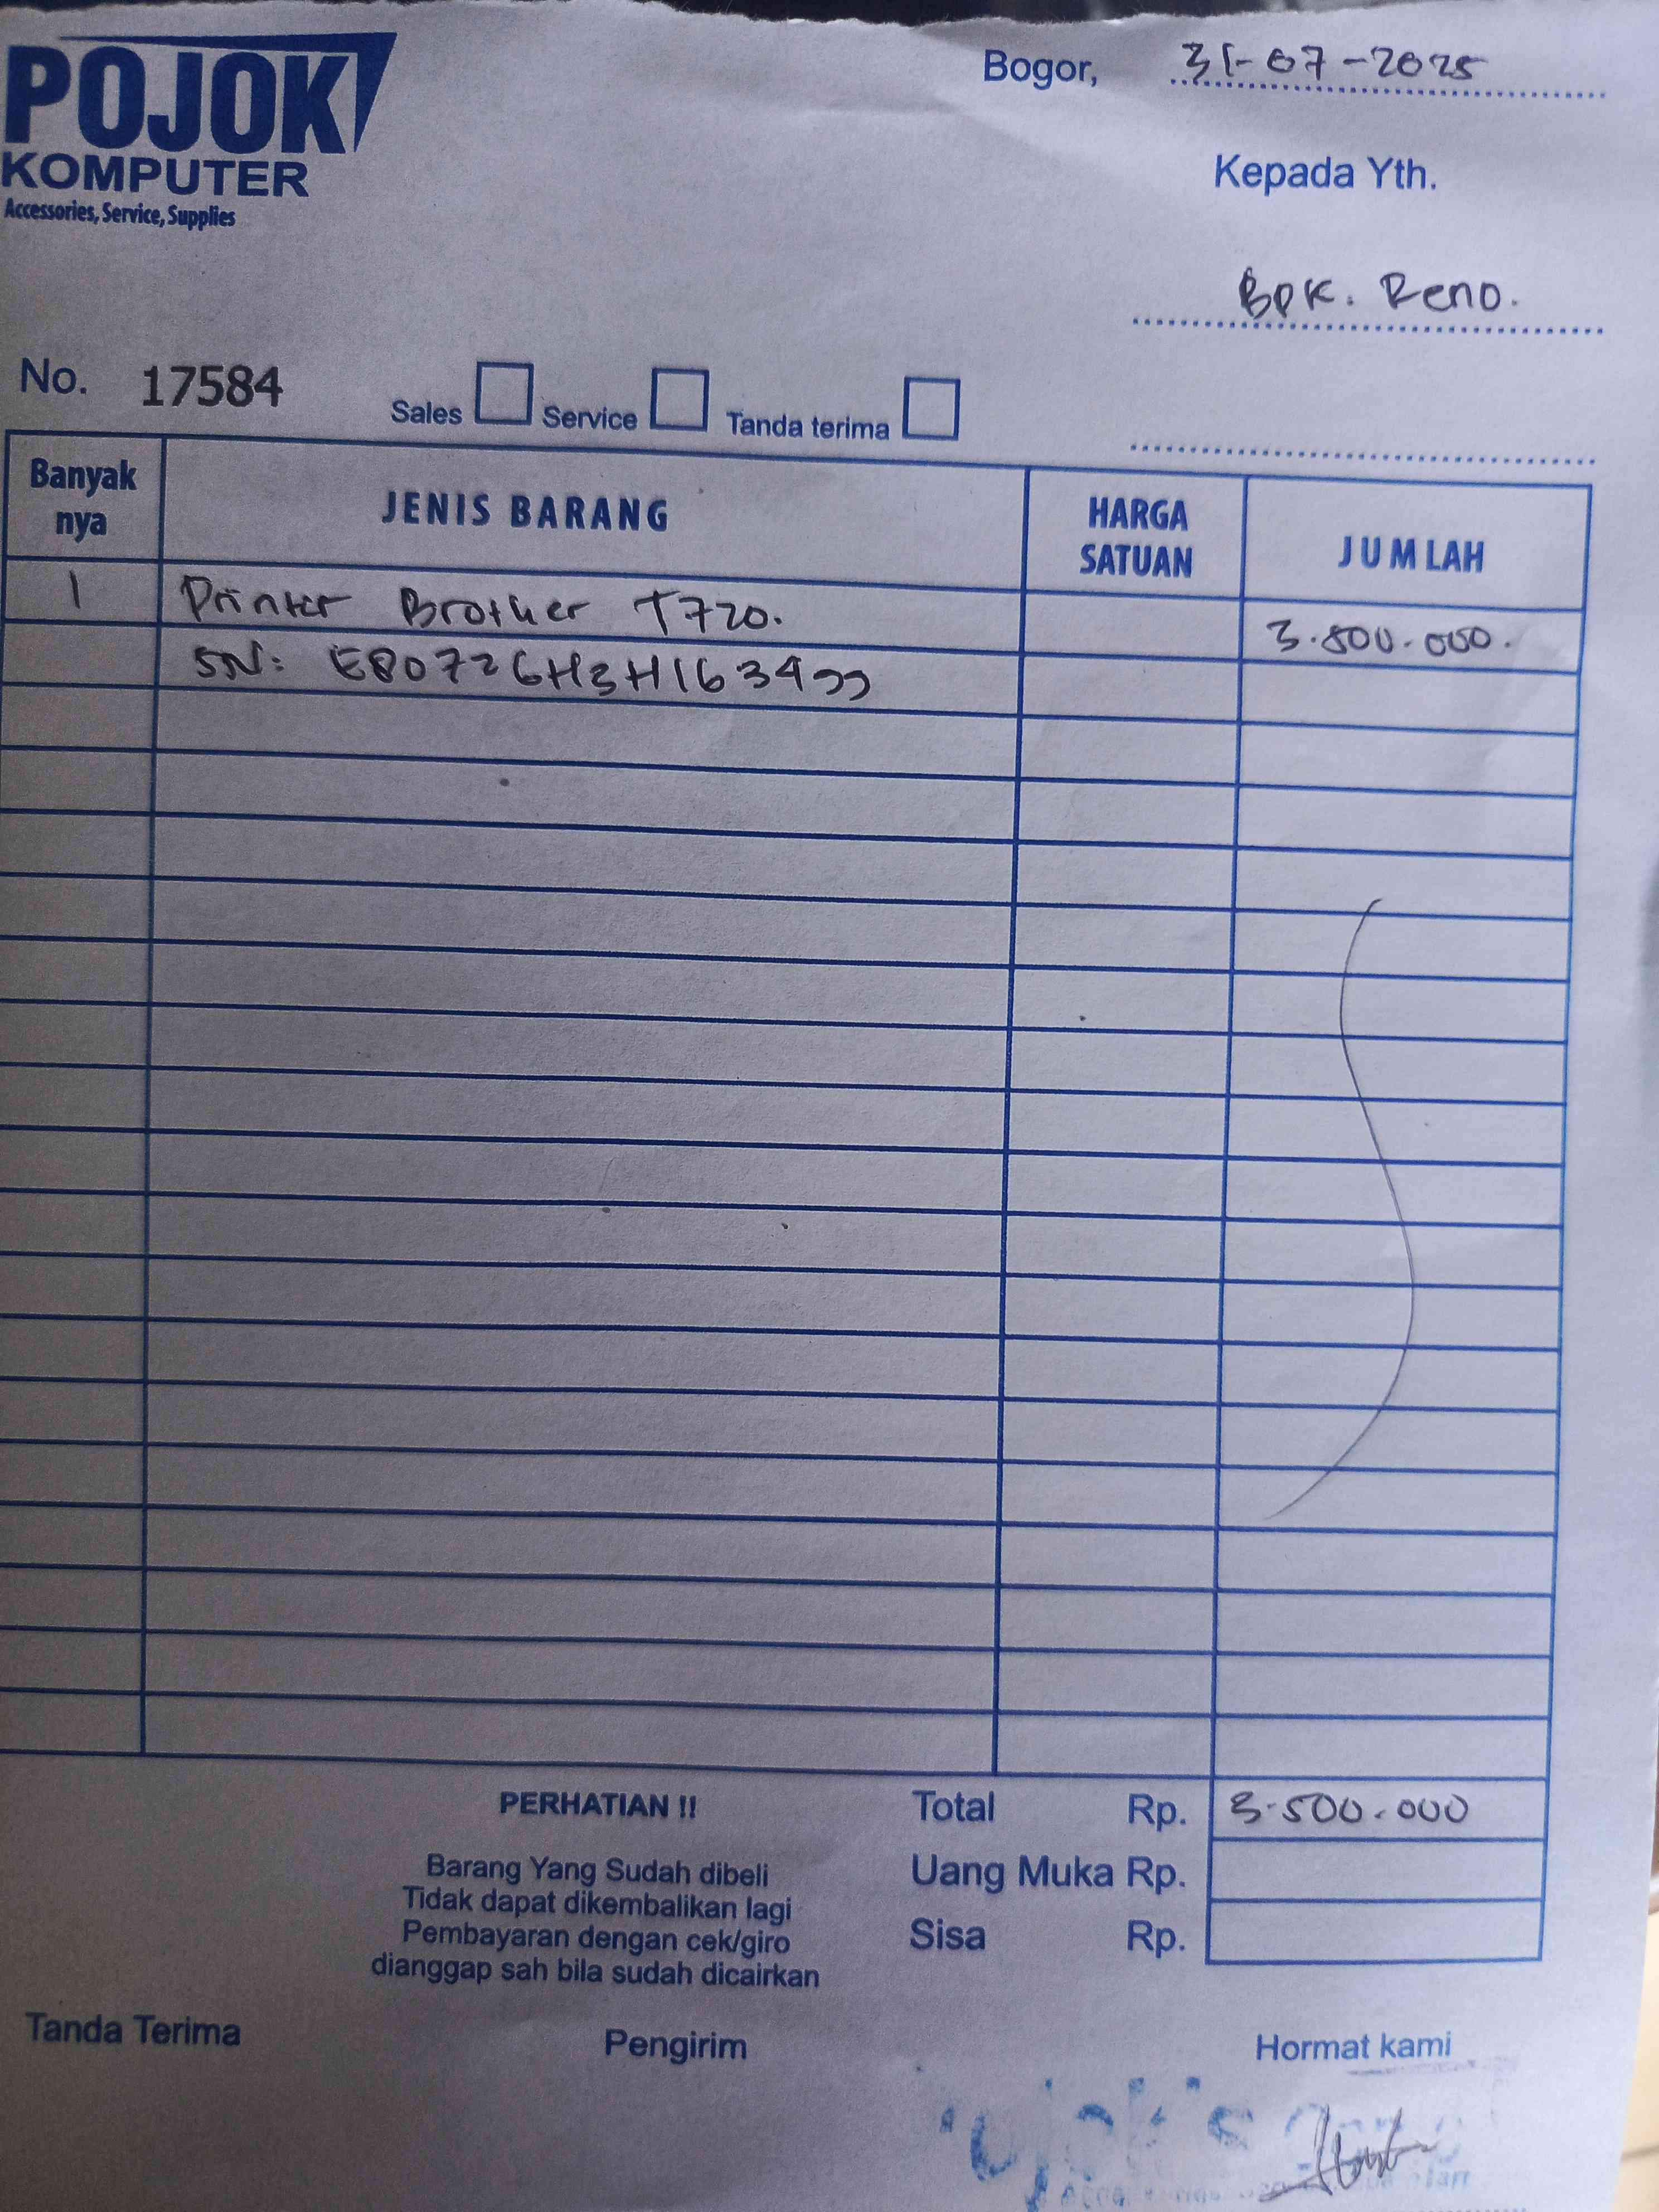 POJOK
KOMPUTER
Accessories, Service, Supplies
Bogor, 31-07-2025
Kepada Yth.
Bpk. Reno.
No. 17584
Sales Service Tanda terima
Banyak nya JENIS BARANG HARGA SATUAN JUMLAH
1 Printer Brother T720. 3.500.000.
SN: E80726H3H163499
Total Rp. 3.500.000
Uang Muka Rp.
Sisa Rp.
PERHATIAN !!
Barang Yang Sudah dibeli
Tidak dapat dikembalikan lagi
Pembayaran dengan cek/giro
dianggap sah bila sudah dicairkan
Tanda Terima Pengirim Hormat kami